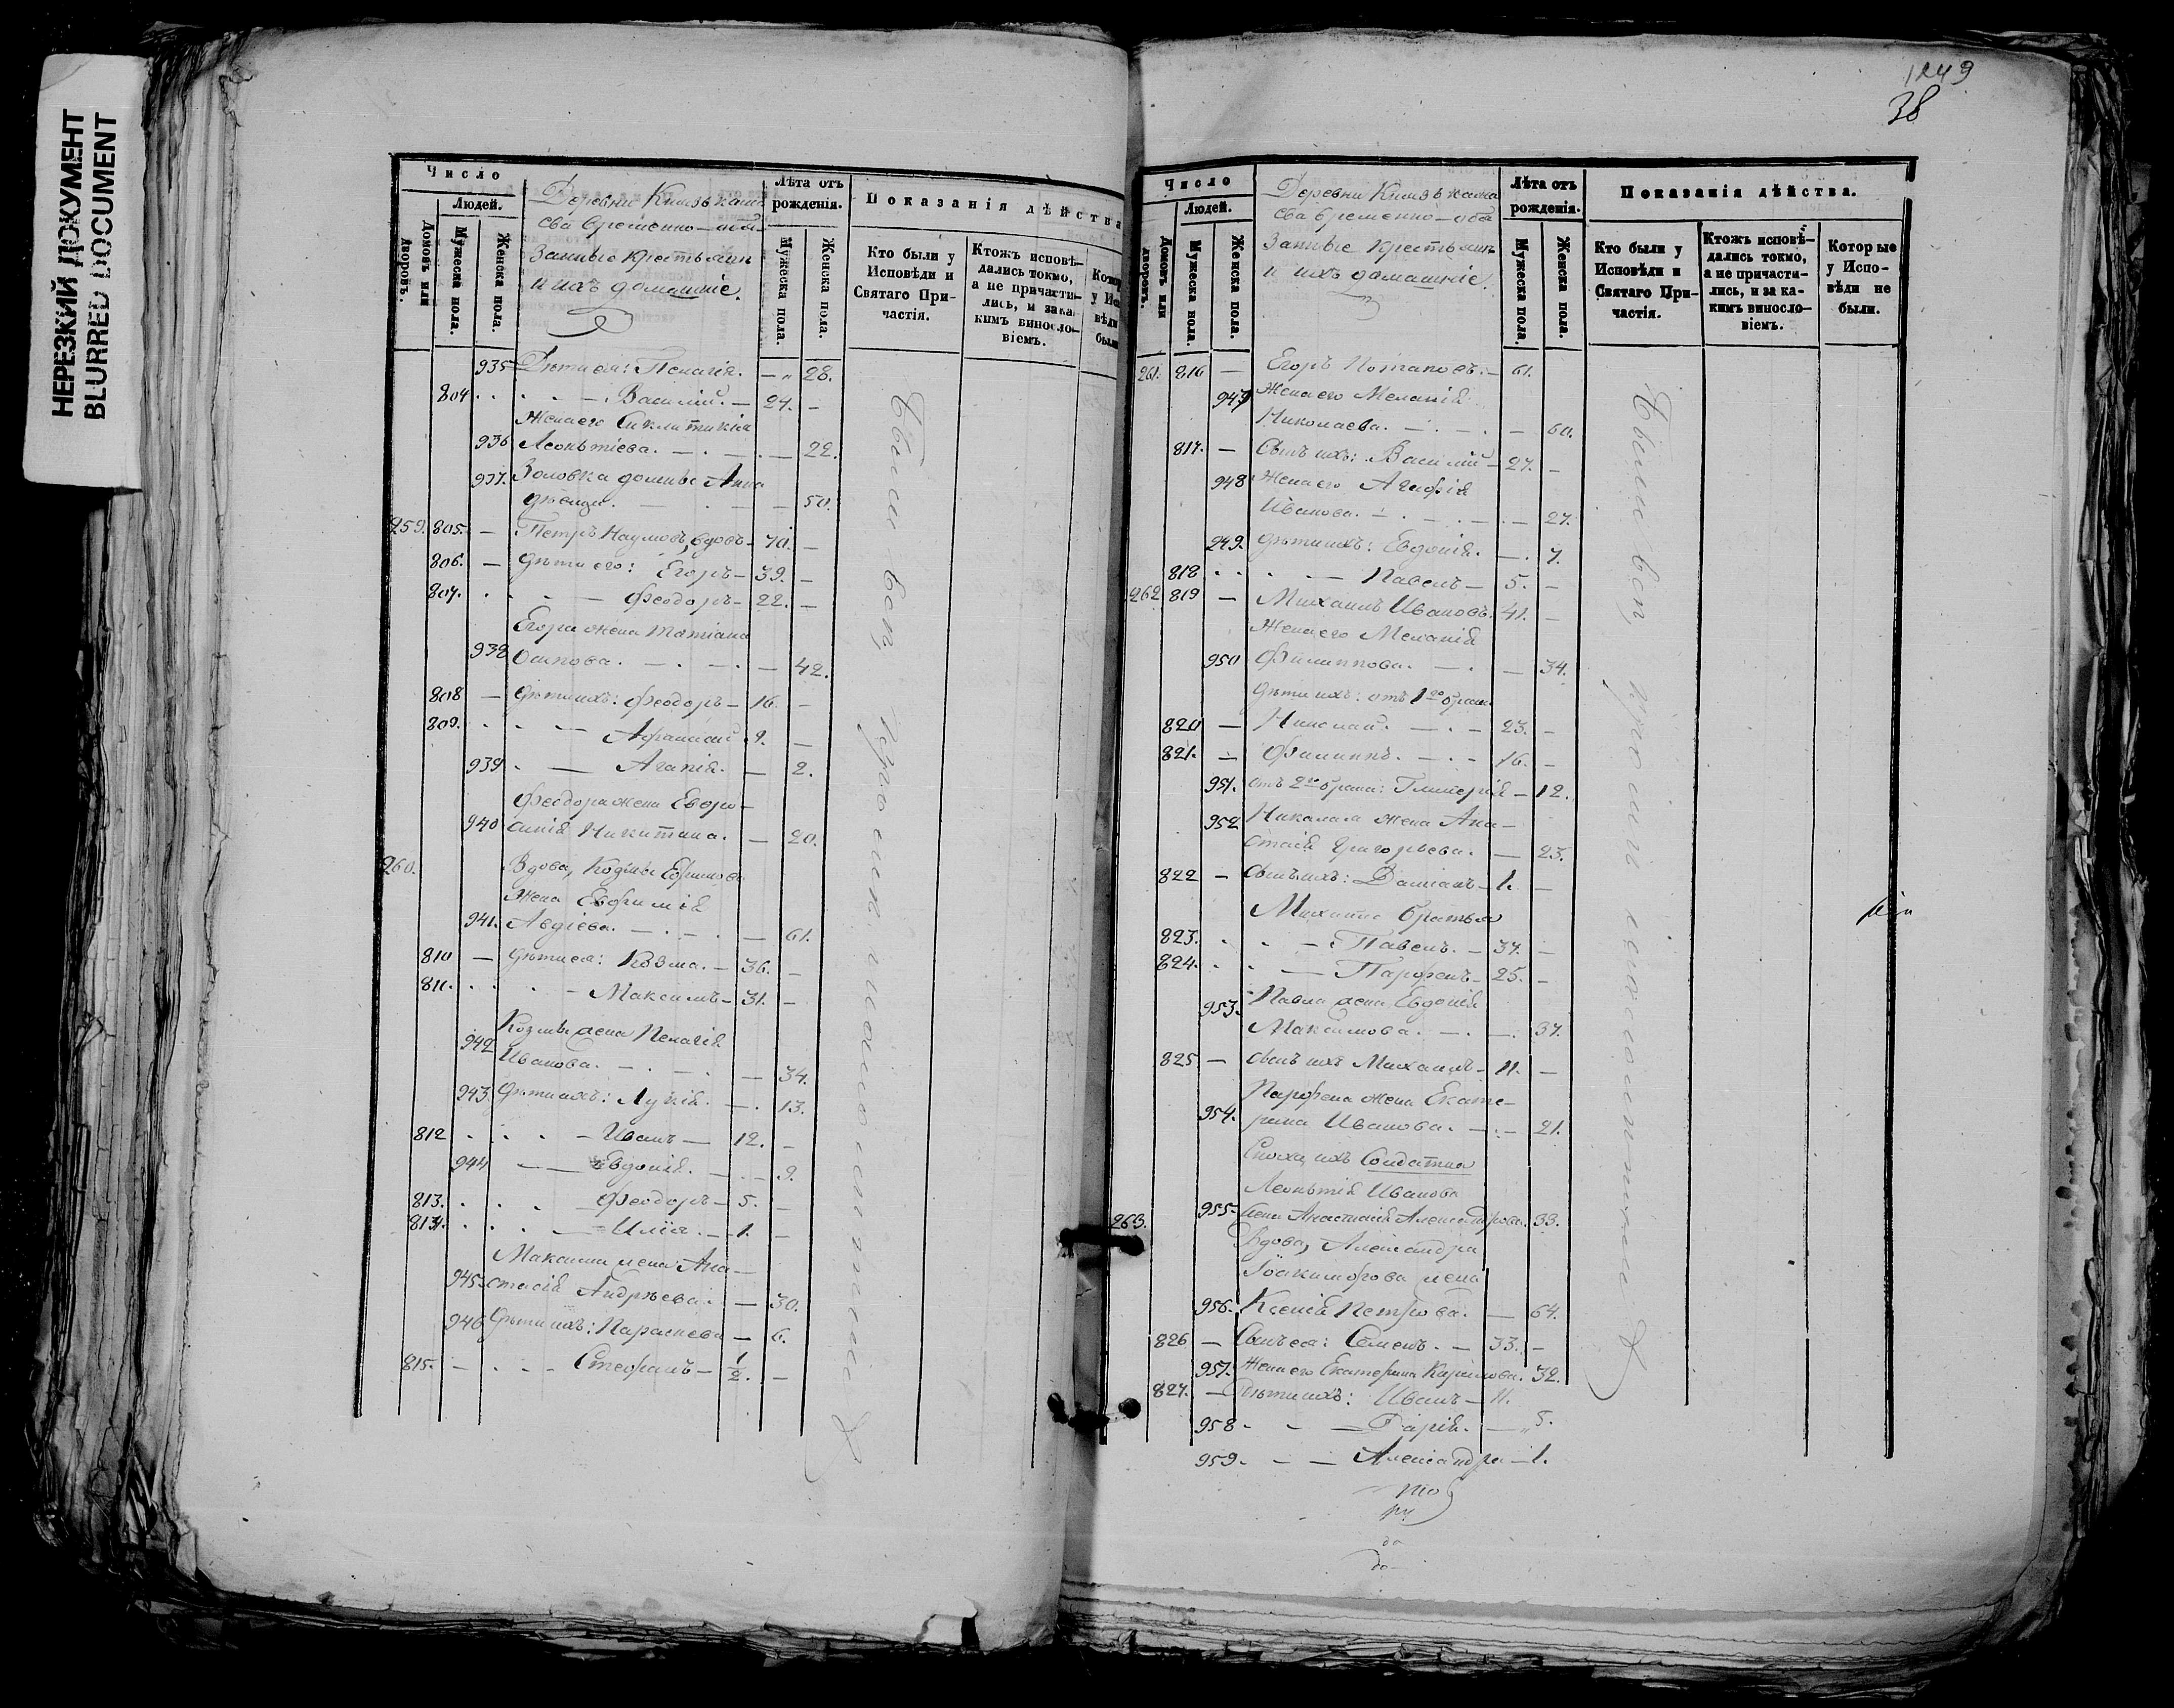 НЕРЕЗКИЙ ДОКУМЕНТ
BLURRED DOCUMENT
Число
Людей.
Домовъ или дворовъ.
Мужеска пола.
Женска пола.
Деревни Князь
сва временно-обя-
занные крестьяне
и ихъ домашніе.
Лѣта отъ рожденія.
Мужеска пола.
Женска пола.
Показанія дѣйства
Кто были у Исповѣди и Святаго Причастія.
Ктожъ исповѣдались токмо, а не причастились, и за какимъ винословіемъ.
935 Дѣти ея: Пелагія. — 28.
804 Василій. — 24. —
Жена его Синклитикія
936 Леонтіева. — 22.
937. Золовка Анна
дѣвица. — 50.
259. 805. — Петръ Наумовъ, вдовъ — 70. —
806. — Дѣти его: Егоръ — 39. —
807. Феодоръ — 22. —
Егора жена Татіана
938 Осипова. — 42.
808 — Дѣти ихъ: Феодоръ — 16. —
809. 9. —
939 Агапія. — 2.
Феодора жена Евфро-
940 синія Никитина. — 20.
260. Вдова, Козмы Ефимова
жена Евфимія
941. Авдіева. — 61.
810 — Дѣти ея: Козма. — 36. —
811. Максимъ — 31. —
Козмы жена Пелагія
942 Иванова. — 34.
943. Дѣти ихъ: Лукія. — 13.
812 Иванъ — 12. —
944 Евдокія. — 9.
813. Феодоръ — 5. —
814. Илія. — 1. —
Максима жена Ана-
945. стасія Андреева. — 30.
946 Дѣти ихъ: Параскева — 6.
815. Стефанъ — 1/2. —
Были вси, кромѣ малолѣтнихъ
1249
38
Число
Людей.
Домовъ или дворовъ.
Мужеска пола.
Женска пола.
Деревни Князь
сва временно-обя
занные крестьяне
и ихъ домашніе.
Лѣта отъ рожденія.
Мужеска пола.
Женска пола.
Показанія дѣйства.
Кто были у Исповѣди и Святаго Причастія.
Ктожъ исповѣдались токмо, а не причастились, и за какимъ винословіемъ.
Которые у Исповѣди не были.
261. 816 — Егоръ Потаповъ. — 61.
947 Жена его Меланія
Николаева. — 60.
817. — Сынъ ихъ: Василій — 27. —
948 Жена его Агафія
Иванова. — 27.
949. Дѣти ихъ: Евдокія. — 7.
818 Павелъ — 5. —
262 819 — Михаилъ Ивановъ. 41. —
Жена его Меланія
950 Филиппова. — 34.
Дѣти ихъ: отъ 1го брака
820 — Николай. — 23. —
821. — Филиппъ. — 16. —
951. отъ 2го брака: Гликерія — 12.
952 Николая жена Ана-
стасія Григорьева. — 23.
822 — Сынъ ихъ: Даміанъ — 1. —
Михаила братья
823. Павелъ. — 37. —
824. Парфенъ — 25. —
953. Павла жена Евдокія
Максимова. — 37.
825 — Сынъ ихъ Михаилъ — 11. —
Парфена жена Екате-
954. рина Иванова. — 21.
Сноха ихъ Солдатка
Леонтія Иванова
955 жена Анастасія Александрова. 33.
263. Вдова, Александра
жена
956. Ксенія Петрова. — 64.
826 — Сынъ ея: Семенъ. — 33. —
957. Жена его Екатерина Кирилова. 32.
827. — Дѣти ихъ: Иванъ — 11.
958 Дарія. — 5.
959. Александра — 1.
Были вси, кромѣ малолѣтнихъ